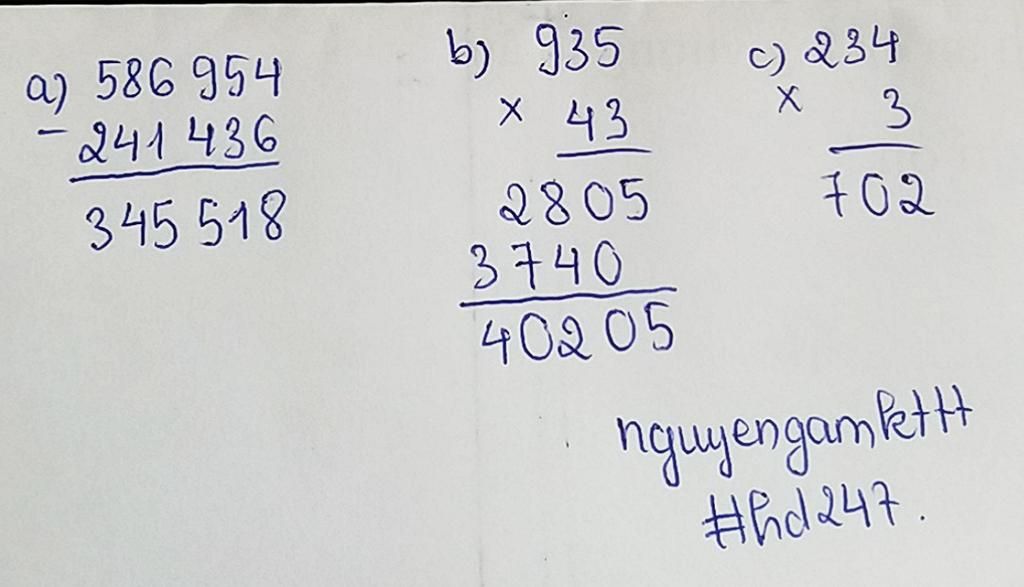 a) 586 954
- 241 436
345 518
b) 935
x 43
2805
3740
40205
c) 234
x 3
702
nguyengamkttt
#hd247.